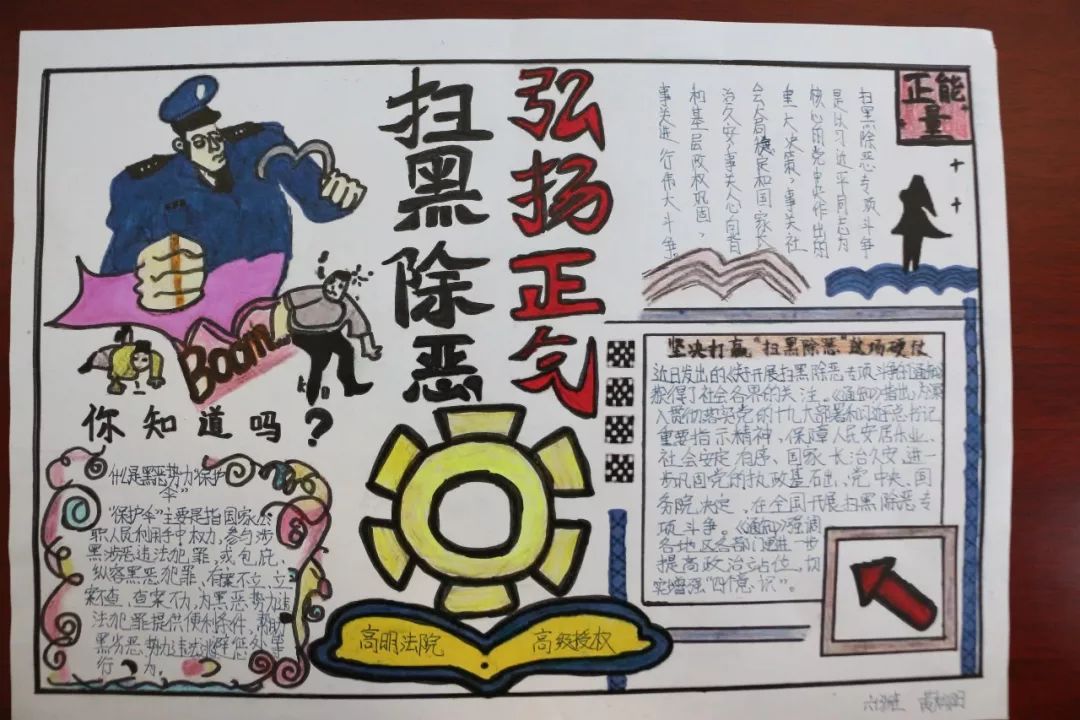 扫黑除恶
弘扬正气
正能
量
扫黑除恶专项斗争
是以习近平同志为
核心的党中央作出的
重大决策，事关社
会大局稳定和国家长
治久安，事关人心向背
和基层政权巩固，
事关进行伟大斗争
Boom...
你知道吗？
什么是黑恶势力"保护
伞"
"保护伞"主要是指国家公
职人员利用手中权力，参与涉
黑涉恶违法犯罪，或包庇、
纵容黑恶犯罪，有案不立、立
案不查、查案不力，为黑恶势力违
法犯罪提供便利条件，帮助
黑恶势力违法逃避惩处等
行为。
坚决打赢"扫黑除恶"这场硬仗
近日发出的《关于开展扫黑除恶专项斗争的通知》
获得了社会各界的关注。《通知》指出，为深
入贯彻落实党的十九大部署和习近平总书记
重要指示精神，保障人民安居乐业、
社会安定有序、国家长治久安，进一
步巩固党的执政基石出，党中央、国
务院决定，在全国开展扫黑除恶专
项斗争。《通知》强调
各地区各部门要进一步
提高政治站位，切
实增强"四个意识"。
高明法院
高级授权